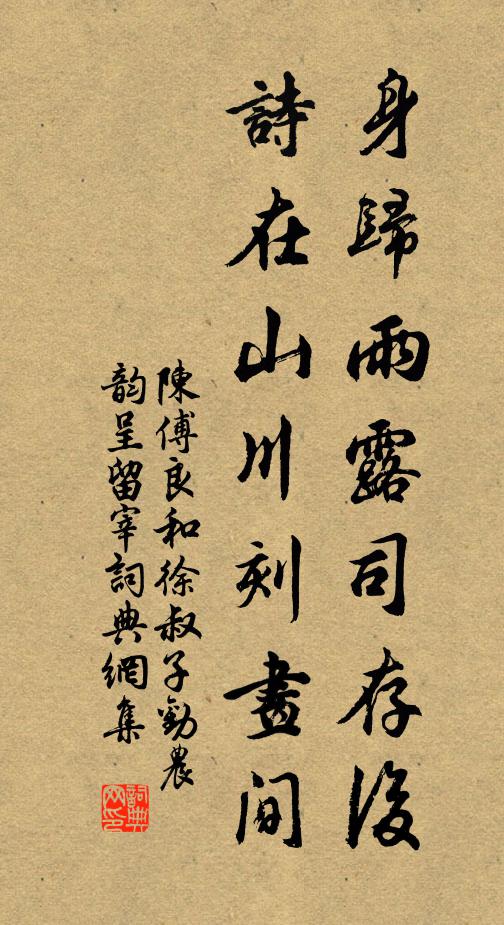 身歸雨露司存後
詩在山川刻畫間
陳傅良和徐叔子勸農
韵呈留宰詞典網集
詞典網印